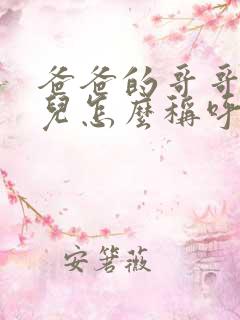 爸爸的哥哥
兒怎麼稱呼
安箬薇